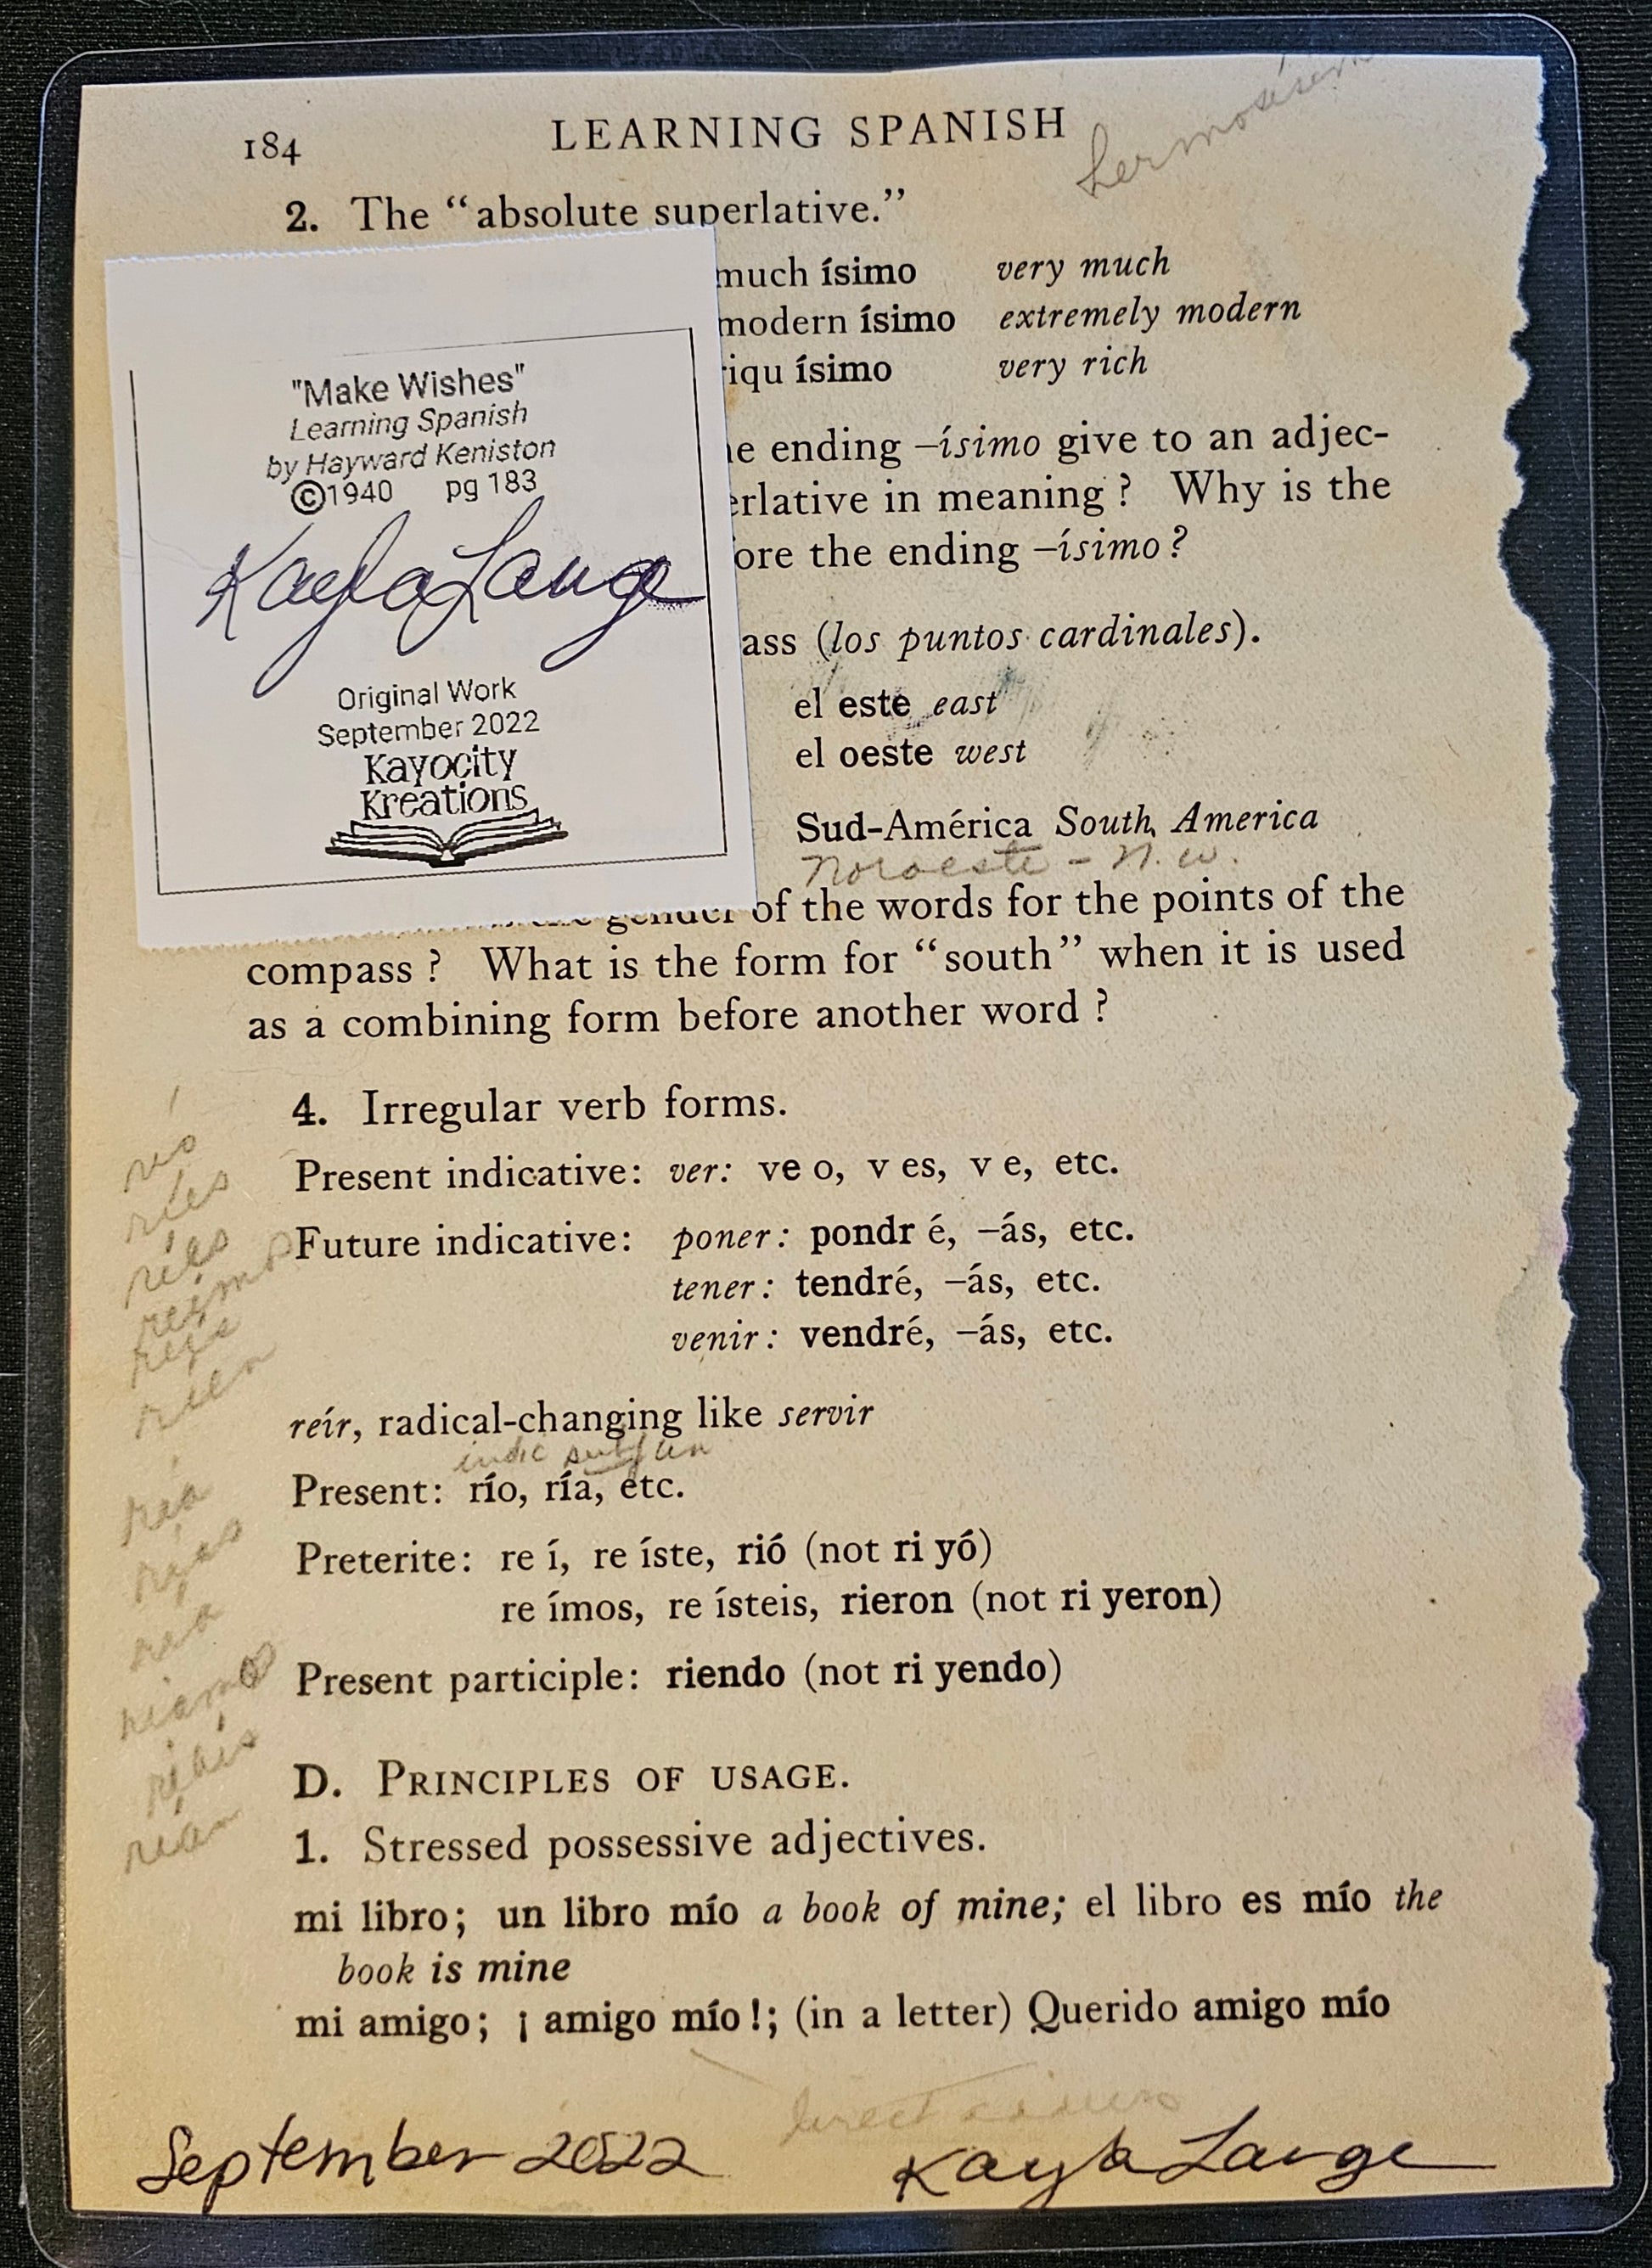 184 LEARNING SPANISH
2. The “absolute superlative.”
much ísimo very much
modern ísimo extremely modern
iqu ísimo very rich
"Make Wishes"
Learning Spanish
by Hayward Keniston
©1940 pg 183
Kayla Lange
Original Work
September 2022
Kayocity
Kreations
e ending –ísimo give to an adjec-
erlative in meaning ? Why is the
ore the ending –ísimo ?
ass (los puntos cardinales).
el este east
el oeste west
Sud-América South America
Noroeste - N.W.
gender of the words for the points of the
compass ? What is the form for “south” when it is used
as a combining form before another word ?
4. Irregular verb forms.
Present indicative: ver: ve o, v es, v e, etc.
Future indicative: poner: pondr é, –ás, etc.
tener: tendré, –ás, etc.
venir: vendré, –ás, etc.
río
ríes
ríen
reír, radical-changing like servir
indic
Present: río, ría, etc.
Preterite: re í, re íste, rió (not ri yó)
re ímos, re ísteis, rieron (not ri yeron)
Present participle: riendo (not ri yendo)
D. PRINCIPLES OF USAGE.
1. Stressed possessive adjectives.
mi libro; un libro mío a book of mine; el libro es mío the
book is mine
mi amigo; ¡ amigo mío !; (in a letter) Querido amigo mío
September 2022 Kayla Lange